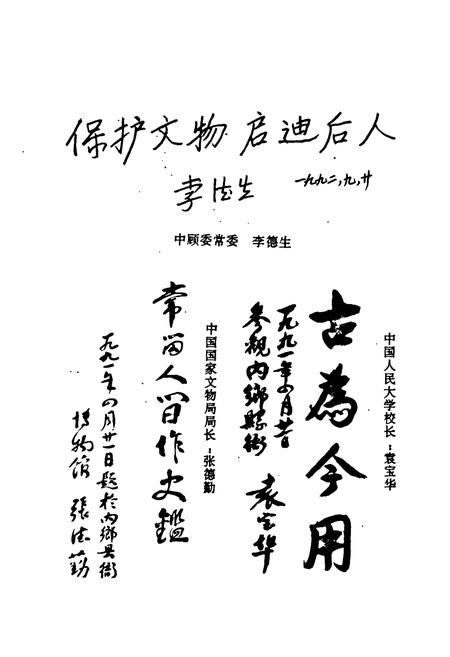 保护文物 启迪后人
李德生 一九九二,九,廿
中顾委常委 李德生
中国人民大学校长-袁宝华
古為今用
一九九一年四月廿日
参观内鄉縣衙
袁宝华
中国国家文物局局长-张德勤
常留人间作史鑑
一九九一年四月廿一日题於内鄉县衙
博物館 張德勤